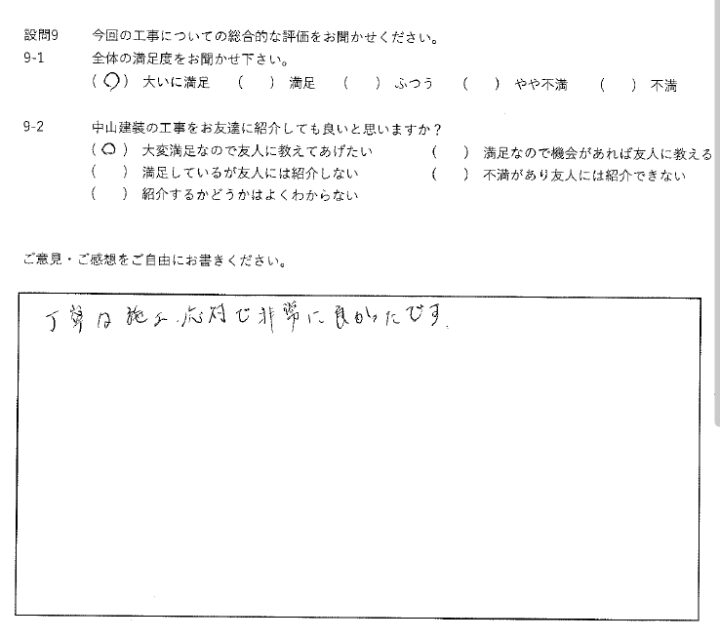 設問9 今回の工事についての総合的な評価をお聞かせください。
9-1 全体の満足度をお聞かせ下さい。
(○) 大いに満足 ( ) 満足 ( ) ふつう ( ) やや不満 ( ) 不満
9-2 中山建装の工事をお友達に紹介しても良いと思いますか？
(○) 大変満足なので友人に教えてあげたい ( ) 満足なので機会があれば友人に教える
( ) 満足しているが友人には紹介しない ( ) 不満があり友人には紹介できない
( ) 紹介するかどうかはよくわからない
ご意見・ご感想をご自由にお書きください。
丁寧な施工、応対で非常に良かったです。